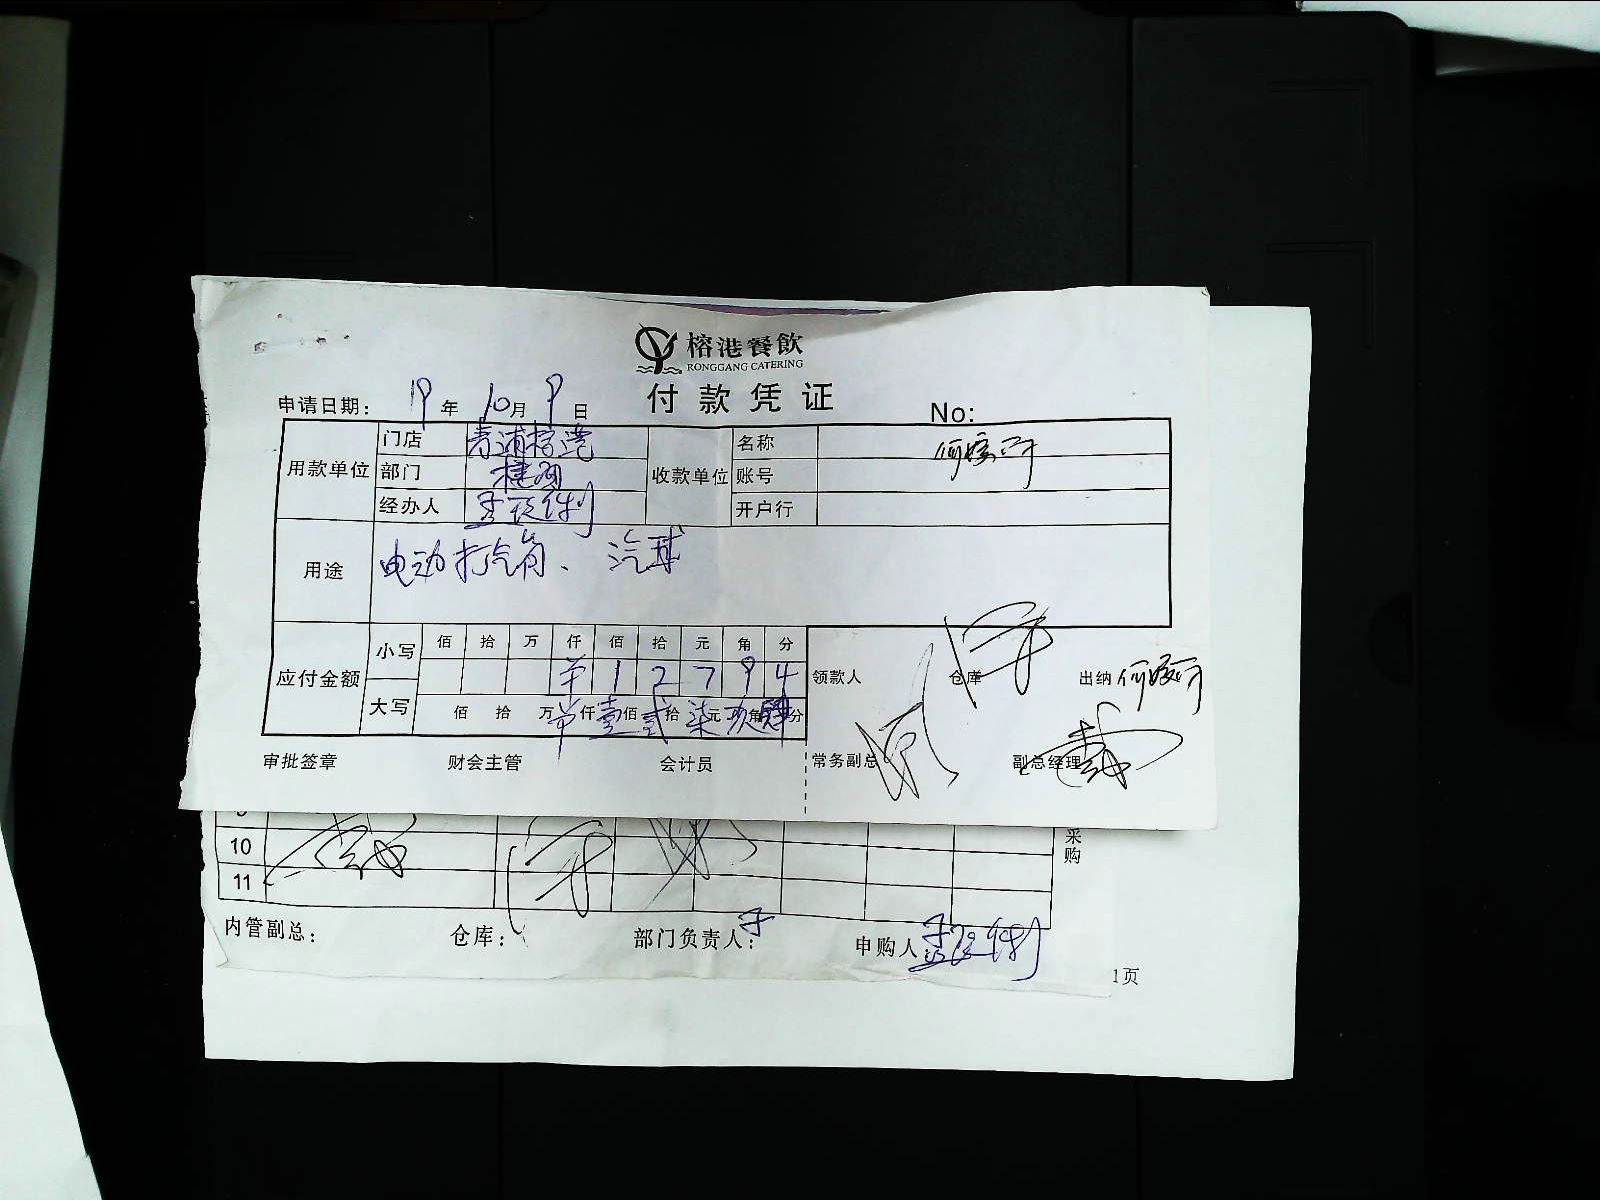 榕港餐飲
RONGGANG CATERING
付款凭证
申请日期： 19 年 10 月 9 日 No:
用款单位 门店 青浦榕港 收款单位 名称
部门 账号
经办人 开户行
用途 电动打汽筒、汽球
应付金额 小写 佰 拾 万 仟 佰 拾 元 角 分
1 2 7 9 4
大写 佰 拾 万 仟 壹 佰 贰 拾 柒 元 玖 角 肆 分
领款人 仓库 出纳
审批签章 财会主管 会计员 常务副总 副总经理
10
11
采购
内管副总： 仓库： 部门负责人： 申购人：
1页